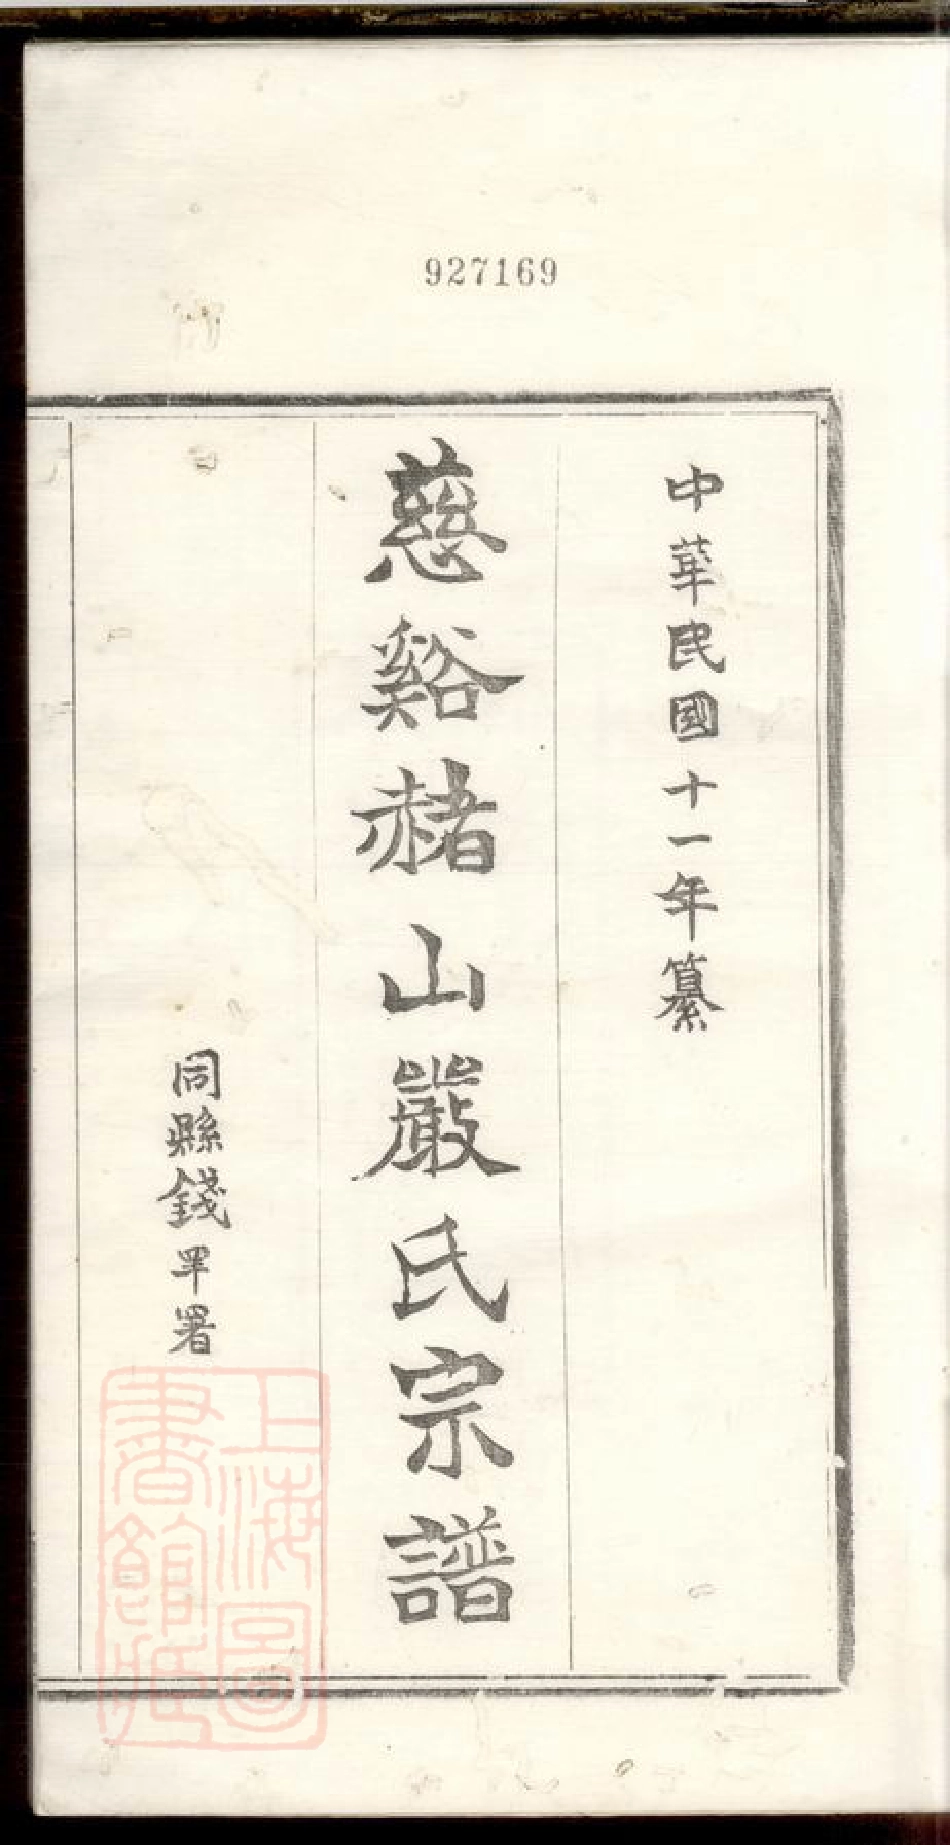 927169
中華民國十一年纂
慈谿赭山嚴氏宗譜
同縣錢罕署
上海圖
書館藏